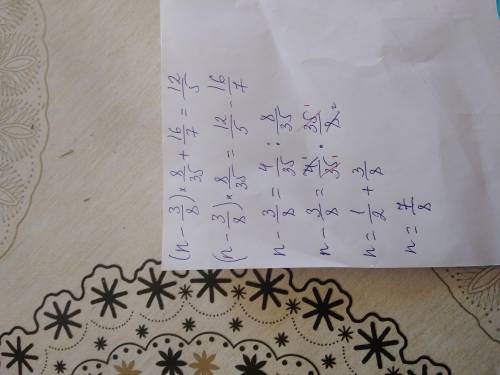 (n - 3/8) × 8/35 + 16/7 = 12/5
(n - 3/8) × 8/35 = 12/5 - 16/7
n - 3/8 = 4/35 : 8/35
n - 3/8 = 4¹/35₁ · 35¹/8₂
n = 1/2 + 3/8
n = 7/8